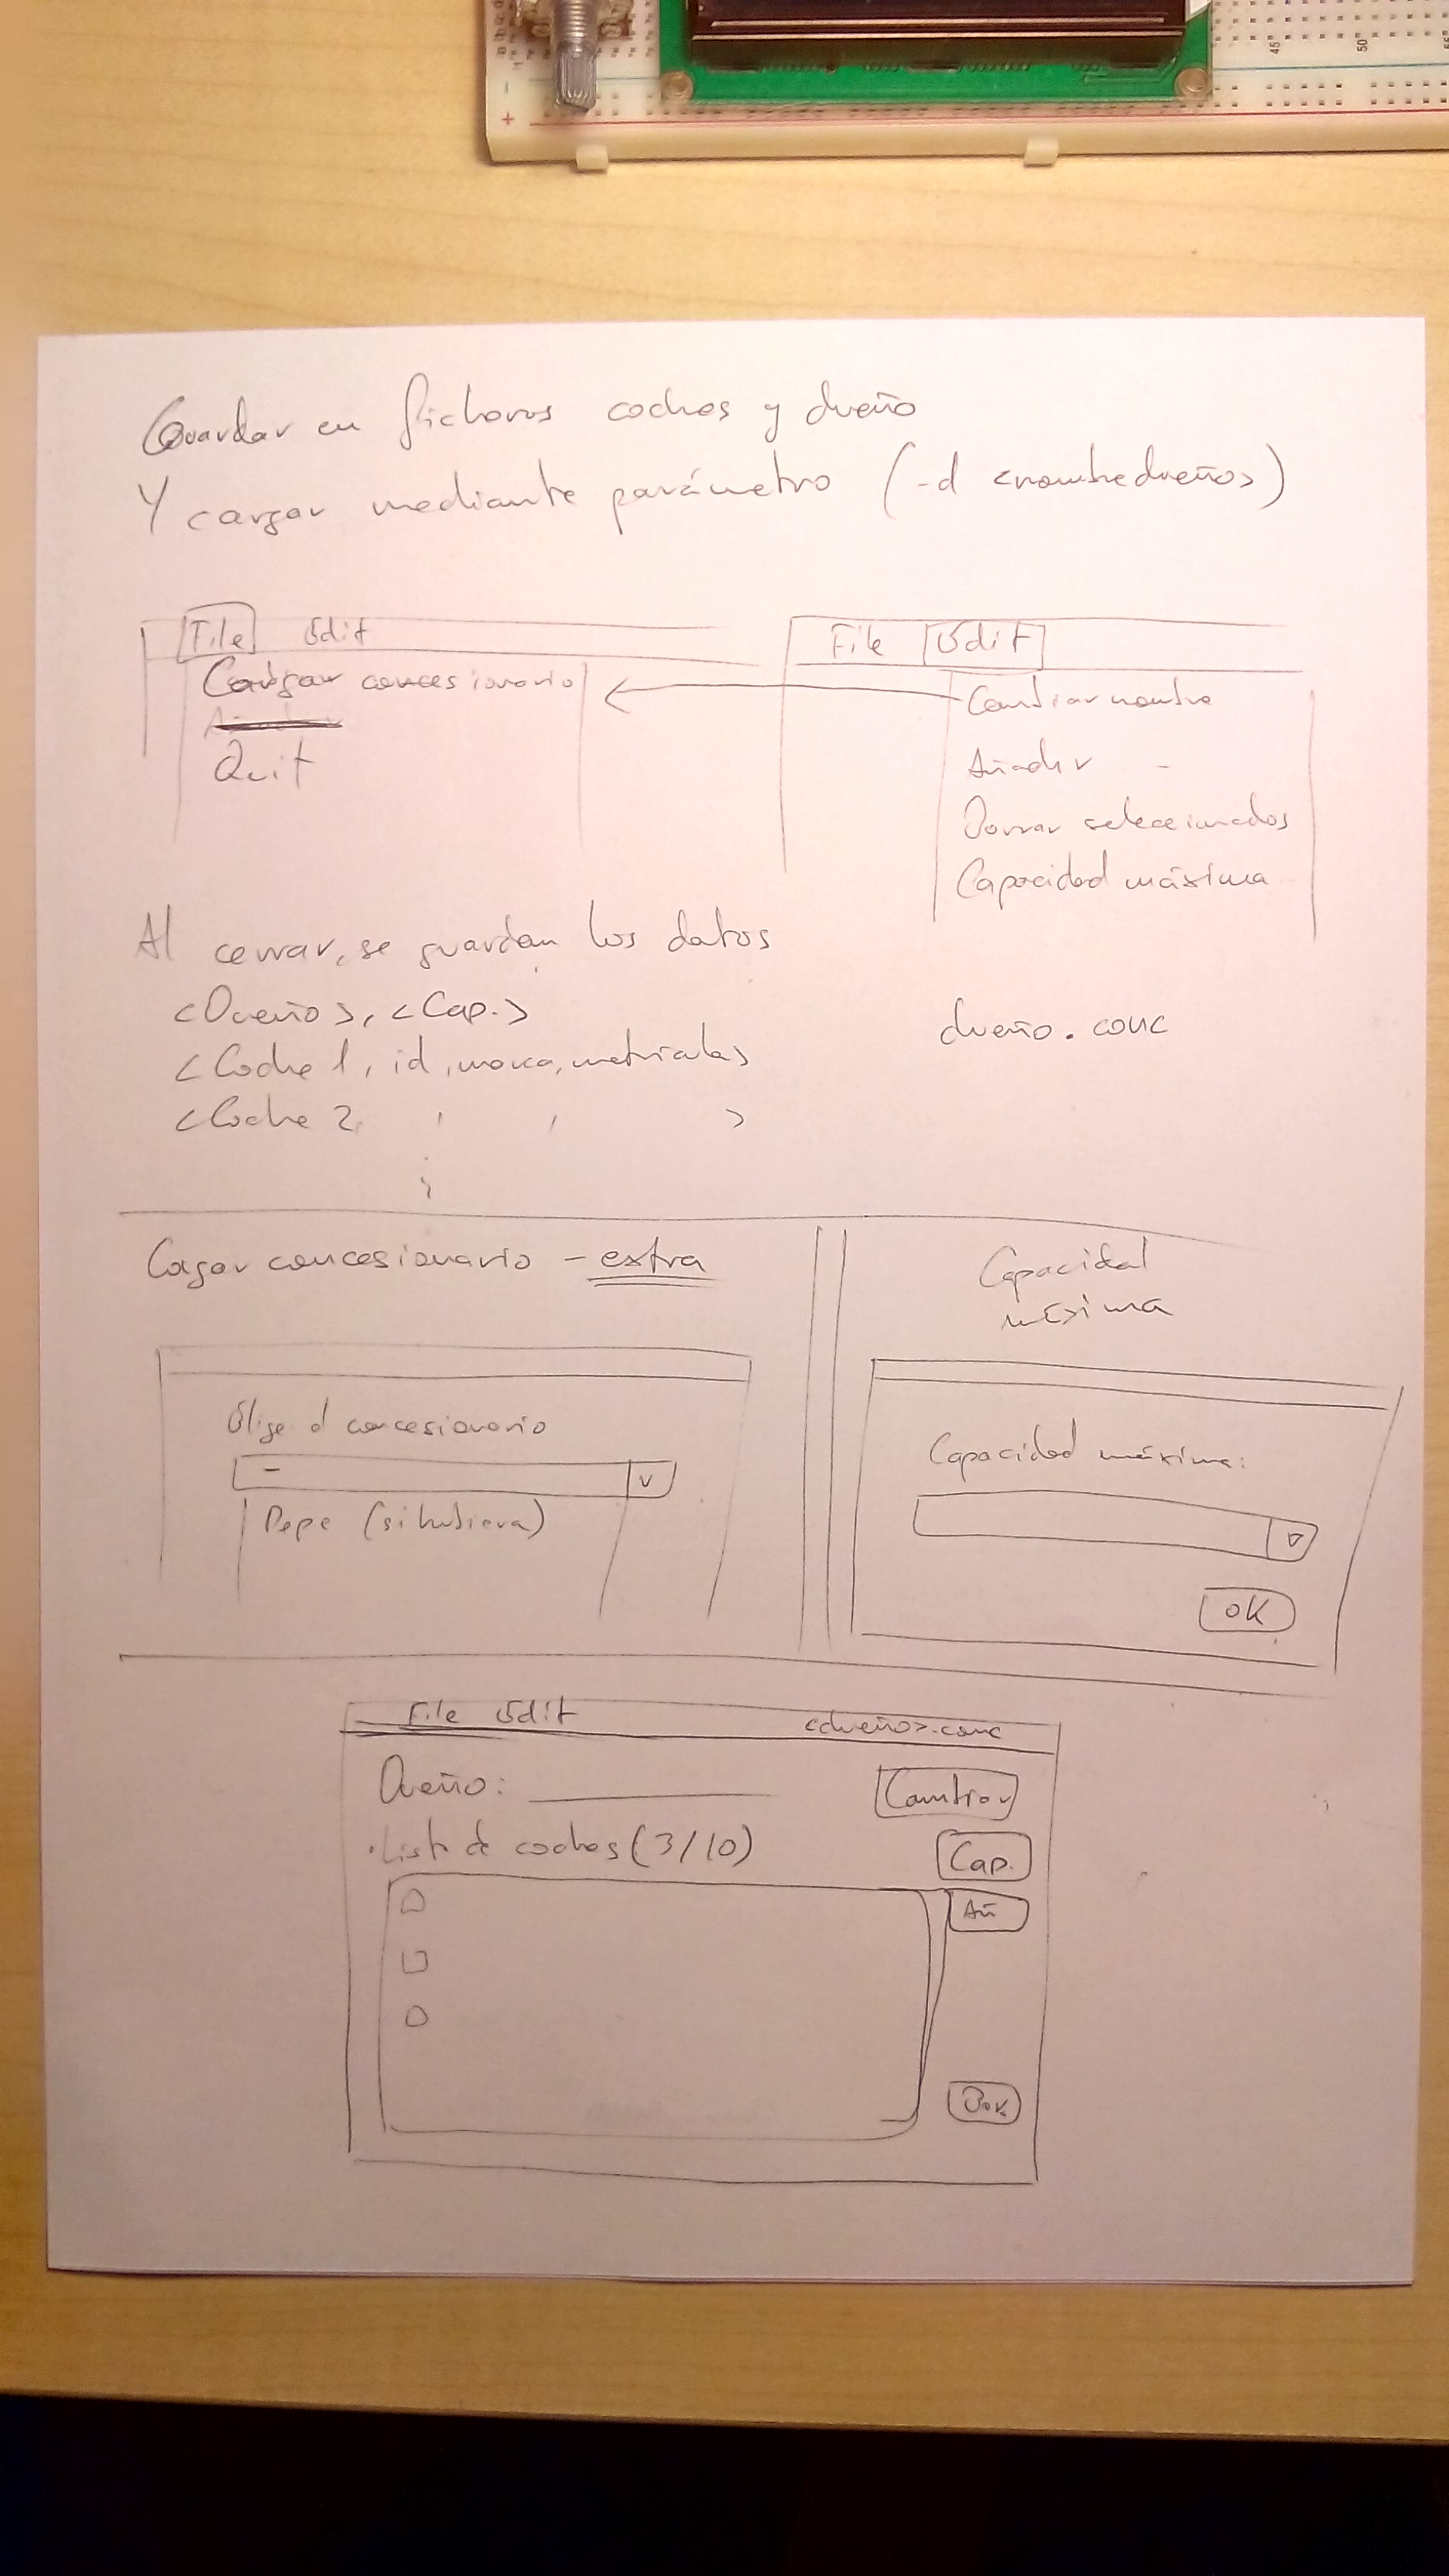 Guardar en ficheros coches y dueño
Y cargar mediante parámetro (-d <nombredueño>)
File Edit
Cargar concesionario
Quit
File Edit
Cambiar nombre
Añadir -
Borrar seleccionados
Capacidad máxima
Al cerrar, se guardan los datos
<Dueño>, <Cap.>
<Coche 1, id, marca, matrícula>
<Coche 2, , , >
dueño.conc
Cagar concesionario - extra
Elige el concesionario
-
v
Pepe (si hubiera)
Capacidad
máxima
Capacidad máxima:
OK
File Edit <dueño>.conc
Dueño: Cambiar
· Lista de coches (3/10) Cap.
Añ
Bor.
+
-
45
50